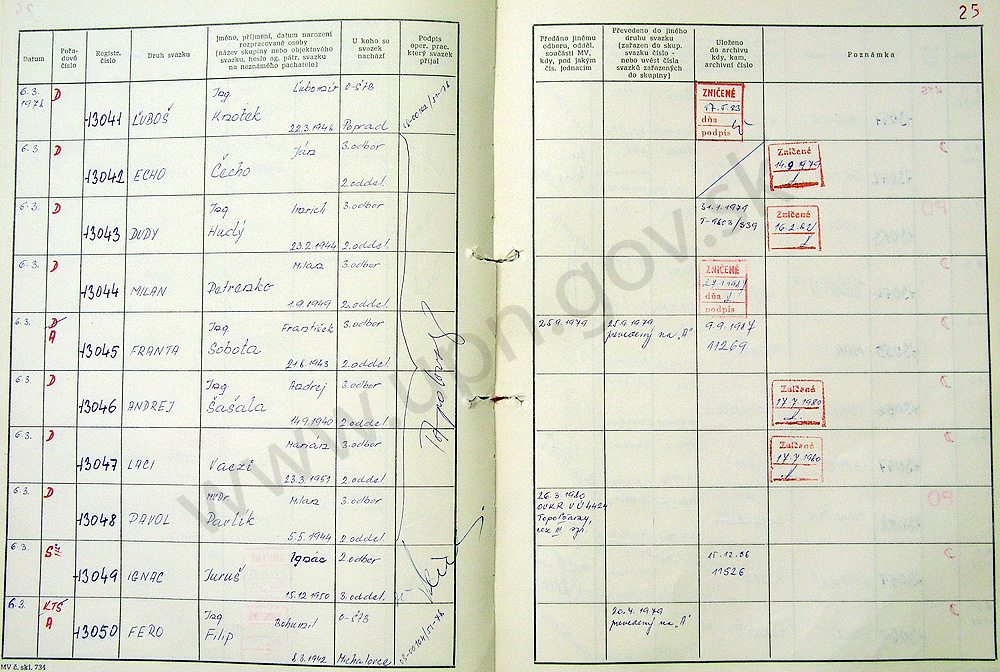 25
Datum
Pořadové číslo
Registr. číslo
Druh svazku
Jméno, příjmení, datum narození rozpracované osoby (název skupiny nebo objektového svazku, heslo ag. pátr. svazku na neznámého pachatele)
U koho se svazek nachází
Podpis oper. prac. který svazek přijal
Předáno jinému odboru, odděl. součásti MV, kdy, pod jakým čís. jednacím
Převedeno do jiného druhu svazku (zařazen do skup. svazku číslo - nebo uvést čísla svazků zařazených do skupiny)
Uloženo do archivu kdy, kam, archivní číslo
Poznámka
6.3. 1978 D 13041 ĽUBOŠ Ing Ľubomír Krotek 22.3.1948 O-ŠtB Poprad
ZNIČENÉ 17.5.83 dňa podpis
6.3. D 13042 ECHO Ján Čecho 3.odbor 2.oddel.
Zničené 14.9.1979
6.3. D 13043 DUDY Ing Imrich Hudý 23.2.1944 3.odbor 2.oddel.
31.1.1979 T-9603/339
Zničené 16.2.82
6.3. D 13044 MILAN Milan Petrenko 1.9.1949 3.odbor 2.oddel.
ZNIČENÉ dňa podpis
6.3. D A 13045 FRANTA Ing František Sobota 21.6.1943 3.odbor 2.oddel.
25.9.1979
25.9.1979 prevedený na "A"
9.9.1987 11269
6.3. D 13046 ANDREJ Ing Andrej Šašala 14.9.1940 3.odbor 2.oddel.
Zničené 17.7.1980
6.3. D 13047 LACI Marián Vaczi 23.3.1951 3.odbor 2.oddel.
Zničené 17.7.1980
6.3. D 13048 PAVOL MVDr Milan Pavlík 5.5.1944 3.odbor 2.oddel.
26.3.1980 OVKR VÚ 4424 Topoľčany,
6.3. 13049 IGNAC Ignác Juruš 15.12.1950 2.odbor 3.oddel.
15.12.86 11526
6.3. KTS A 13050 FERO Ing Bohumil Filip 8.8.1942 O-ŠtB Michalovce
20.4.1979 prevedený na "A"
MV č. skl. 734
www.upn.gov.sk